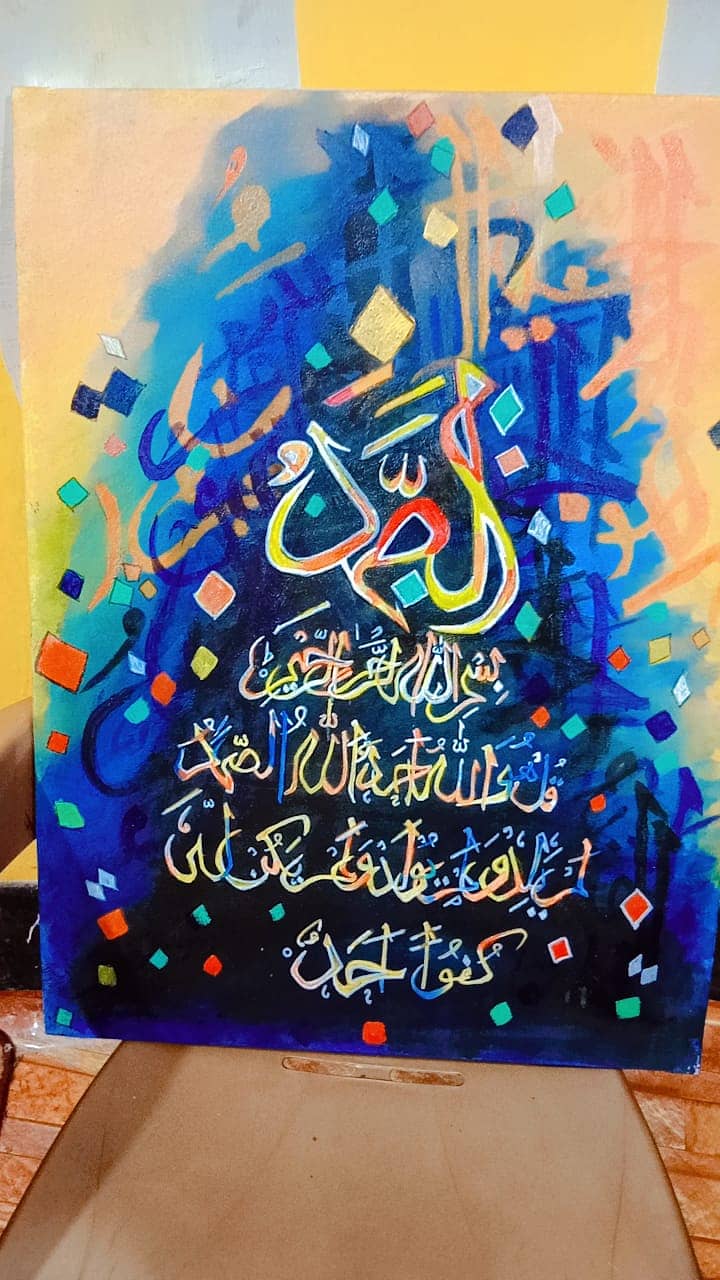 الصَّمَدُ
بِسْمِ اللهِ الرَّحْمٰنِ الرَّحِيْمِ
قُلْ هُوَ اللهُ اَحَدٌ اللهُ الصَّمَدُ
لَمْ يَلِدْ وَلَمْ يُوْلَدْ وَلَمْ يَكُنْ لَّهٗ
كُفُوًا اَحَدٌ